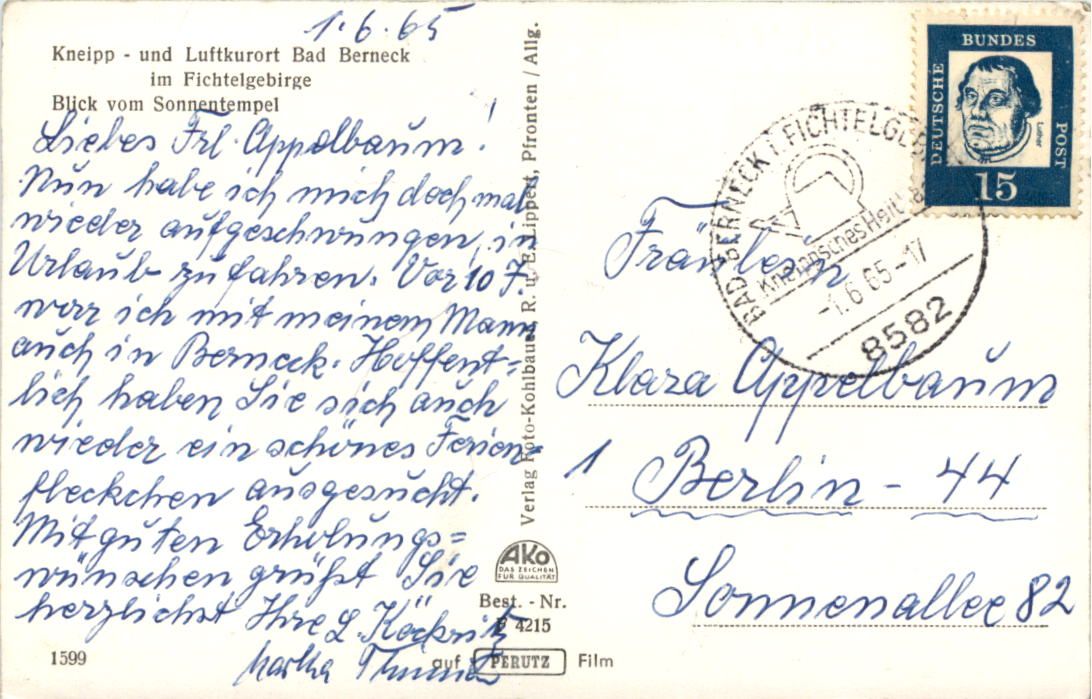 1.6.65
Kneipp - und Luftkurort Bad Berneck
im Fichtelgebirge
Blick vom Sonnentempel
Liebes Frl. Appelbaum!
Nun habe ich mich doch mal
wieder aufgeschwungen, in
Urlaub zu fahren. Vor 10 J.
war ich mit meinem Mann
auch in Berneck. Hoffent=
lich haben Sie sich auch
wieder ein schönes Ferien-
fleckchen ausgesucht.
Mit guten Erholungs=
wünschen grüßt Sie
herzlichst Ihre L. Köckritz
Martha
1599
Verlag Foto-Kohlbauer R. u. E. Lippert, Pfronten / Allg.
AKO
DAS ZEICHEN
FÜR QUALITÄT
Best. - Nr.
P 4215
auf PERUTZ Film
DEUTSCHE
BUNDES
POST
Luther
15
BAD BERNECK I. FICHTELGEB
Kneippsches Heilbad
-1.6.65-17
8582
Fräulein
Klara Appelbaum
1 Berlin - 44
Sonnenallee 82